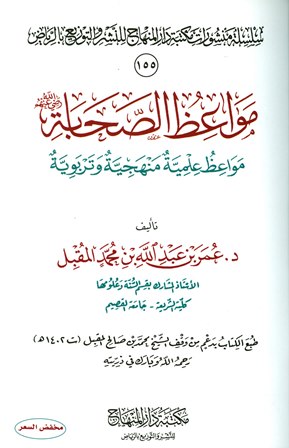 سلسلة منشورات مكتبة دار المنهاج للنشر والتوزيع بالرياض
١٥٥
مَوَاعِظُ الصَّحَابَةِ رضي الله عنهم
مَوَاعِظُ عِلْمِيَّةٌ مَنْهَجِيَّةٌ وَتَرْبَوِيَّةٌ
تأليف
د. عُمَر بْن عَبْدِ اللَّهِ بْنِ مُحَمَّدٍ المُقْبِل
الأستاذ المشارك بقسم السنة وعلومها
كلية الشريعة - جامعة القصيم
طُبِعَ الكِتَابُ بِدَعْمٍ مِنْ وَقْفِ الشيخ محمد بن صالح المقبل (ت ١٤٠٢ هـ)
رحمه الله وبارك في ذريته
مكتبة دار المنهاج
للنشر والتوزيع بالرياض
مخفض السعر